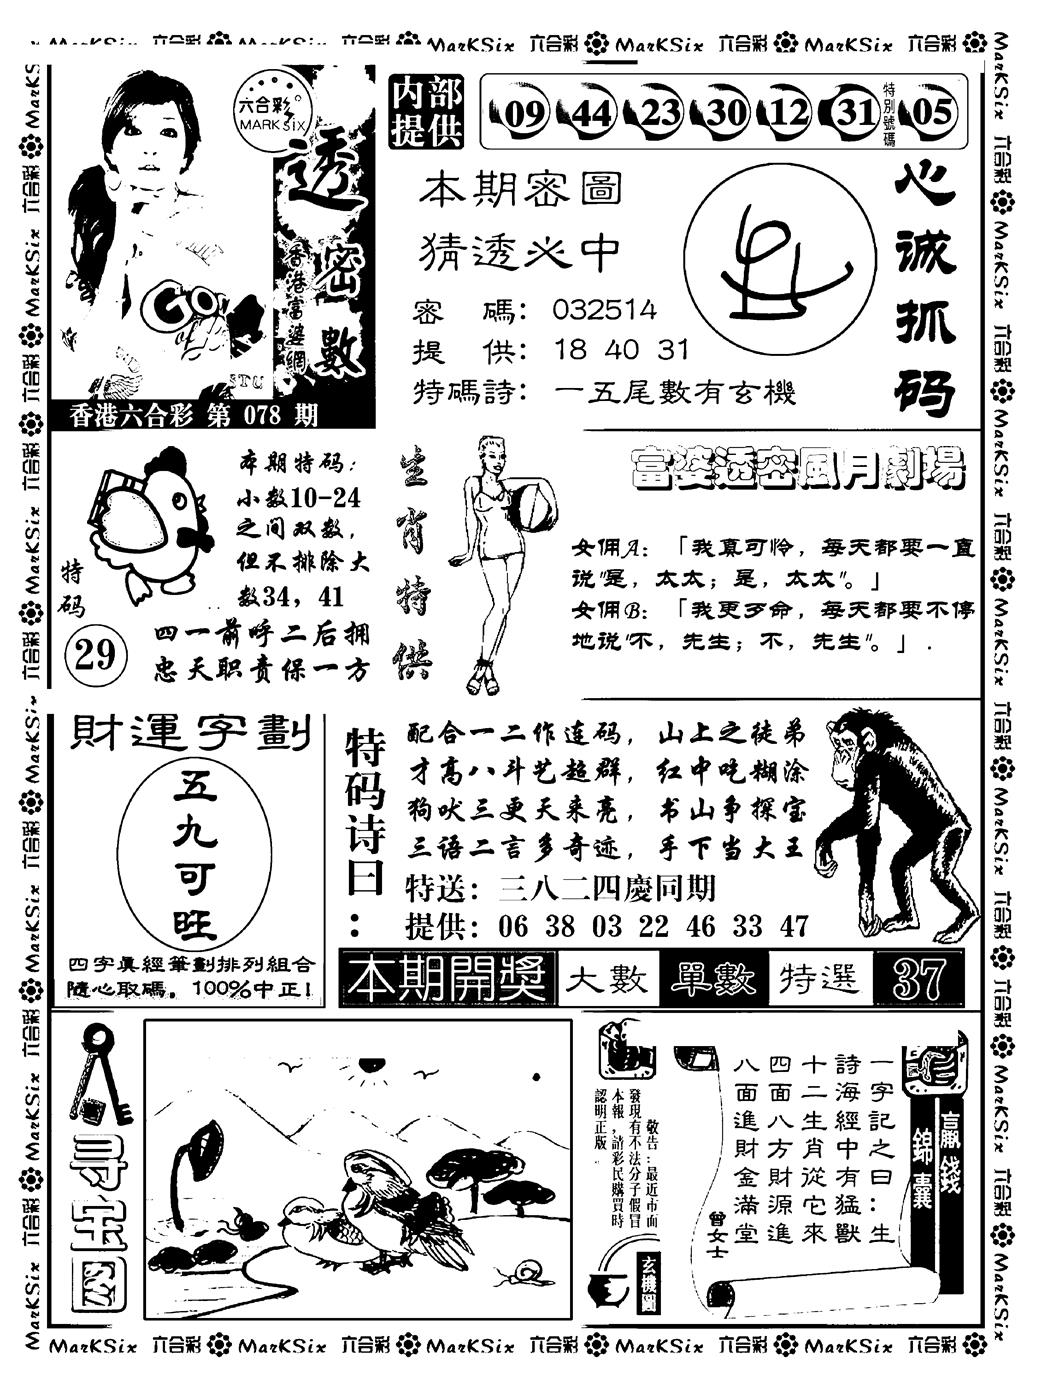 六合彩 MarKSix 六合彩 MarKSix 六合彩 MarKSix
六合彩
MARK SIX
透密數
香港富婆網
香港六合彩 第 078 期
内部提供
09 44 23 30 12 31 特別號碼 05
本期密圖
猜透必中
密 碼: 032514
提 供: 18 40 31
特碼詩: 一五尾數有玄機
心诚抓码
本期特码:
小数10-24
之间双数,
但不排除大
数34, 41
特码
29
四一前呼二后拥
忠天职责保一方
生肖特供
富婆透密風月劇場
女佣A: 「我真可怜，每天都要一直
说"是，太太；是，太太"。」
女佣B: 「我更歹命，每天都要不停
地说"不，先生；不，先生"。」.
財運字劃
五九可旺
四字真經筆劃排列組合
隨心取碼，100%中正!
特码诗曰:
配合一二作连码，山上之徒弟
才高八斗艺超群，红中吃糊涂
狗吠三更天来亮，书山争探宝
三语二言多奇迹，手下当大王
特送: 三八二四慶同期
提供: 06 38 03 22 46 33 47
本期開獎 大數 單數 特選 37
寻宝图
敬告:最近市面
發現有不法分子假冒
本報，請彩民購買時
認明正版.
玄機圖
一字記之曰:生
詩海經中有猛獸
十二生肖從它來
四面八方財源進
八面進財金滿堂
曾女士
贏錢
錦囊
MarKSix 六合彩 MarKSix 六合彩 MarKSix 六合彩 MarKSix 六合彩 MarKSix 六合彩